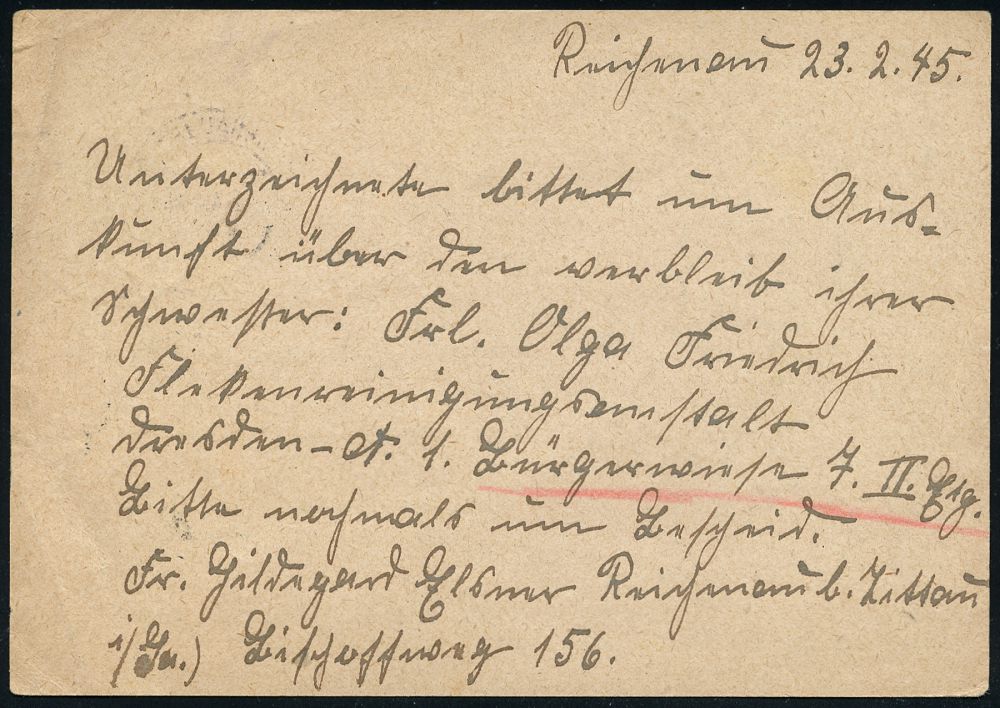 Reichenau 23. 2. 45.
Unterzeichnete bittet um Aus-
kunft über den verbleib ihrer
Schwester: Frl. Olga Friedrich
Flekenreinigungsanstalt
Dresden – A. 1. Bürgerwiese 7. II. Etg.
Bitte nochmals um Bescheid.
Fr. Hildegard Elsner Reichenau b. Zittau
i/Sa.) Bischoffweg 156.